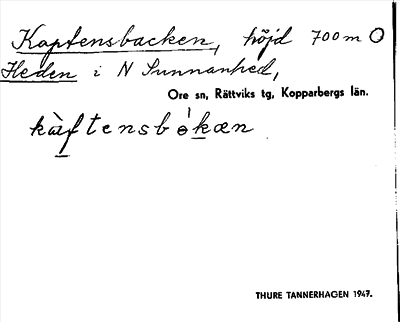 Kaptensbacken, höjd 700 m O
Heden i N Sunnanhed,
Ore sn, Rättviks tg, Kopparbergs län.
kàftensbòkæn
THURE TANNERHAGEN 1947.